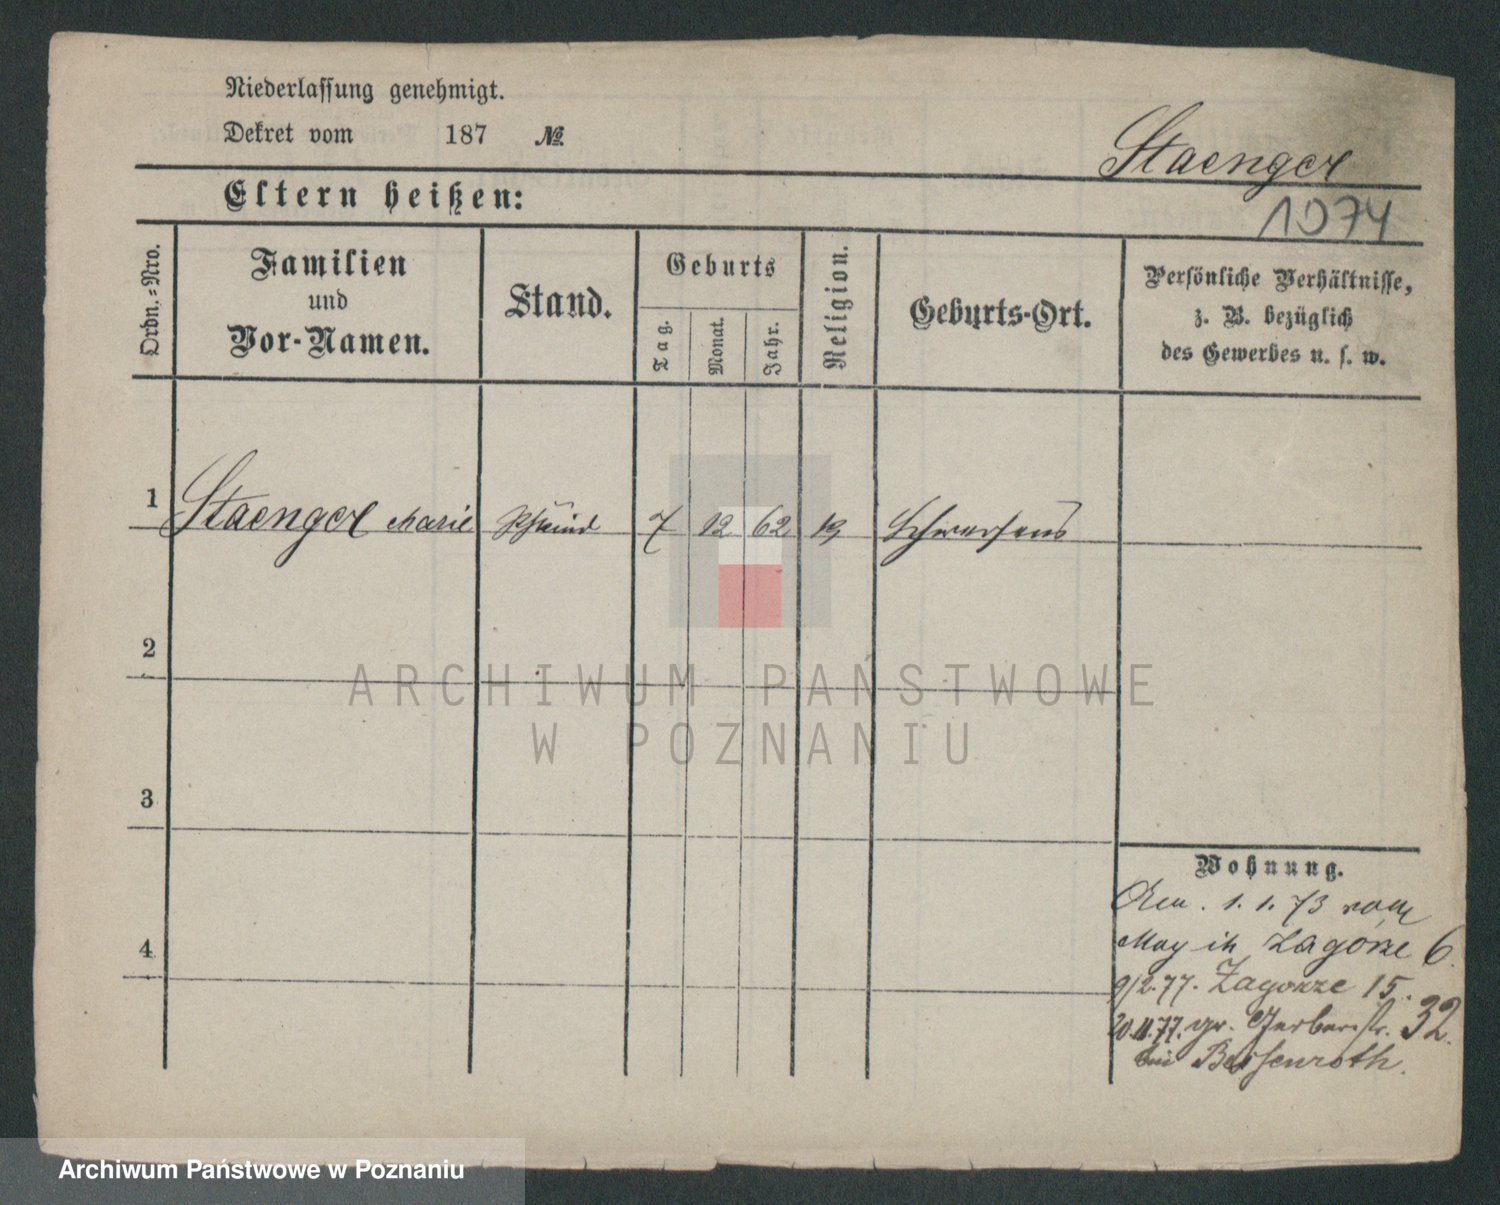 Niederlassung genehmigt.
Dekret vom 187 №
Staenger
Eltern heißen:
1074
Ordn.-Nro.
Familien
und
Vor-Namen.
Stand.
Geburts
Tag.
Monat.
Jahr.
Religion.
Geburts-Ort.
Persönliche Verhältnisse,
z. B. bezüglich
des Gewerbes u. s. w.
1 Staenger Marie 7 12 62 Schwersenz
2
3
4
Wohnung.
1. 1. 73 vom
in Zagorze 6.
9/2.77. Zagorze 15.
20.11.77. gr. Gerberstr. 32.
bei
ARCHIWUM PAŃSTWOWE
W POZNANIU
Archiwum Państwowe w Poznaniu